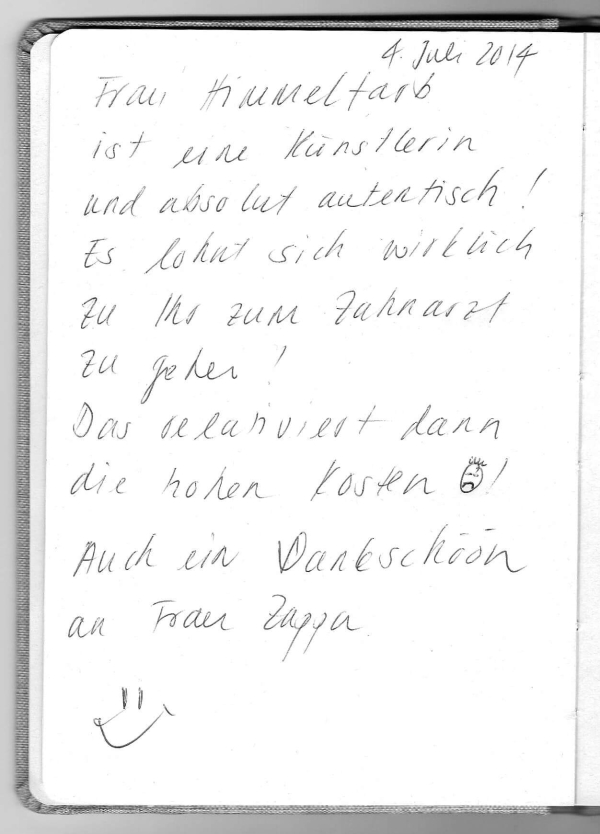 4. Juli 2014
Frau Himmelfarb
ist eine Künstlerin
und absolut autentisch!
Es lohnt sich wirklich
zu Ihr zum Zahnarzt
zu gehen!
Das relativiert dann
die hohen Kosten !
Auch ein Dankschöön
an Frau